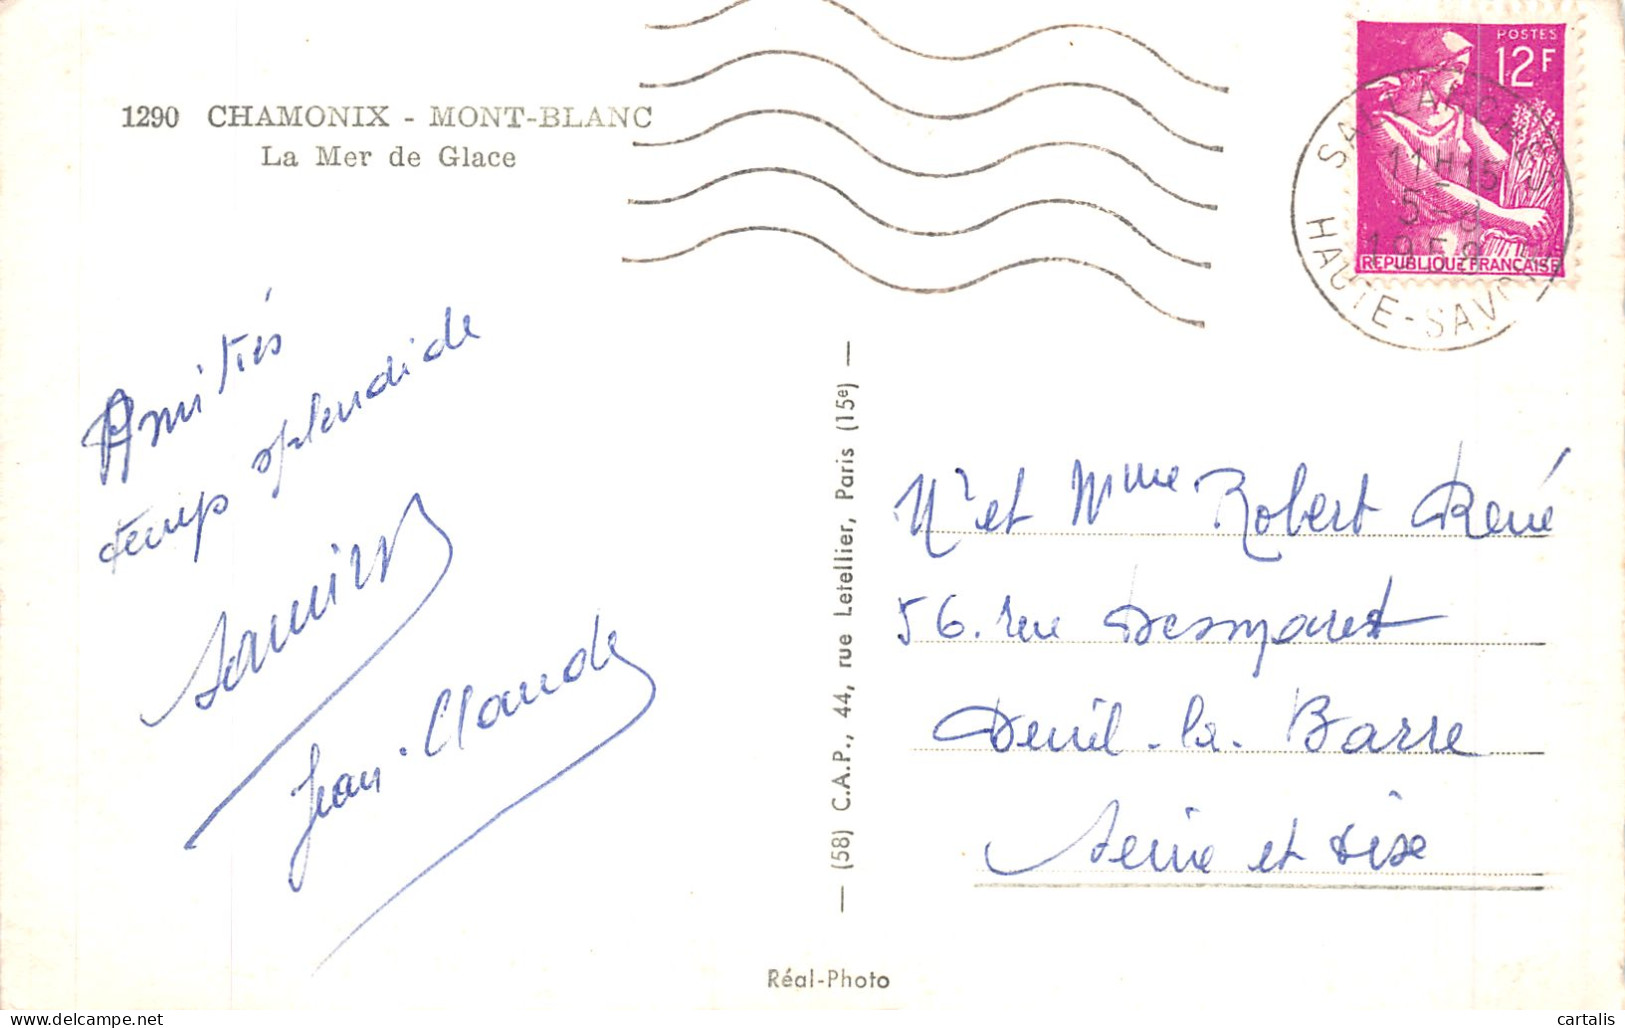 1290 CHAMONIX - MONT-BLANC
La Mer de Glace
POSTES
12F
REPUBLIQUE FRANÇAISE
11H15
5-8
1958
HAUTE-SAVOIE
Amitiés
temps splendide
Jean-Claude
— (58) C.A.P., 44, rue Letellier, Paris (15e) —
Mr et Mme Robert René
56. rue Desmaret
Deuil-la-Barre
Seine et Oise
Réal-Photo
delcampe.net
cartalis